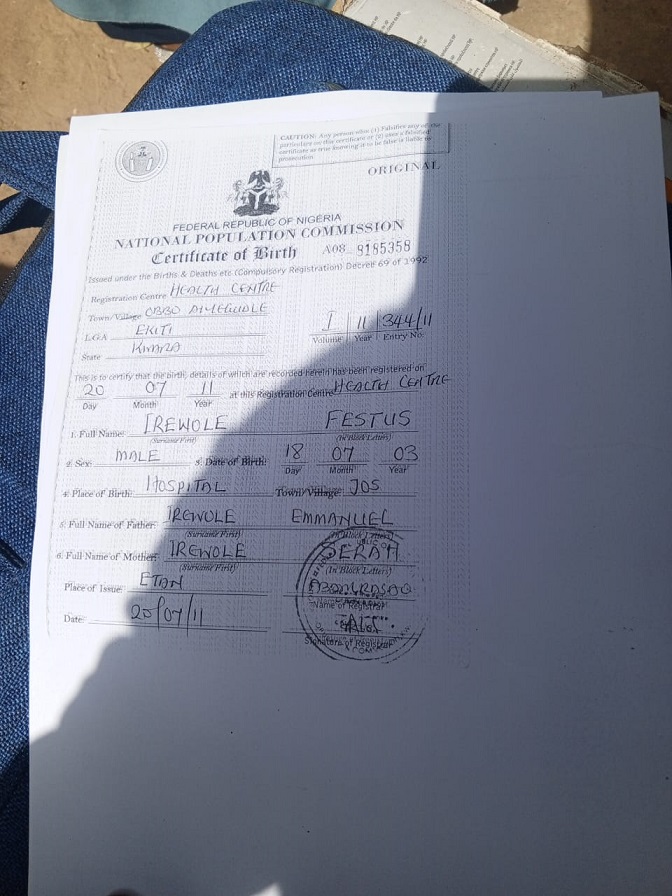 CAUTION: Any person who (1) Falsifies any of the
particulars on this certificate or (2) uses a falsified
certificate as true knowing it to be false is liable to
prosecution
ORIGINAL
FEDERAL REPUBLIC OF NIGERIA
NATIONAL POPULATION COMMISSION
Certificate of Birth A08 9185358
Issued under the Births & Deaths etc (Compulsory Registration) Decree 69 of 1992
Registration Centre HEALTH CENTRE
Town/Village OBBO
L.G.A EKITI
State KWARA
I 11 344/11
Volume Year Entry No.
This is to certify that the birth, details of which are recorded herein has been registered on
20 07 11 at this Registration Centre HEALTH CENTRE
Day Month Year
1. Full Name: IREWOLE FESTUS
(Surname First) (In Block Letters)
2. Sex: MALE 3. Date of Birth: 18 07 03
Day Month Year
4. Place of Birth: HOSPITAL Town/Village: JOS
5. Full Name of Father: IREWOLE EMMANUEL
(Surname First) (In Block Letters)
6. Full Name of Mother: IREWOLE SERAH
(Surname First) (In Block Letters)
Place of Issue: ETAN
Name of Registrar
Date: 20/07/11
Signature of Registrar